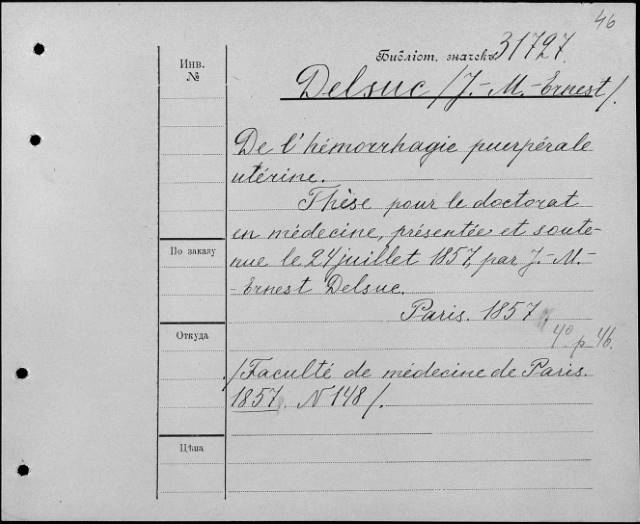 46
Инв.
№
Библіот. значекъ 31727.
Delsuc /J.-M.-Ernest/.
De l'hémorrhagie puerpérale
utérine.
Thèse pour le doctorat
en médecine, présentée et soute-
nue le 24 juillet 1857, par J.-M.-
-Ernest Delsuc.
Paris. 1857
4° p. 46.
/Faculté de médecine de Paris.
1857. N 148/.
По заказу
Откуда
Цѣна